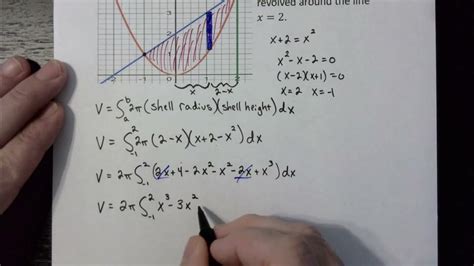 revolved around the line
x = 2.
x+2 = x²
x²-x-2 = 0
(x-2)(x+1) = 0
x=2 x=-1
-1 1 2
x 2-x
V = ∫ᵇ₂ 2π (shell radius)(shell height) dx
V = ∫²₋₁ 2π (2-x)(x+2-x²) dx
V = 2π ∫²₋₁ (2x+4-2x²-x²-2x+x³) dx
V = 2π ∫²₋₁ x³-3x²